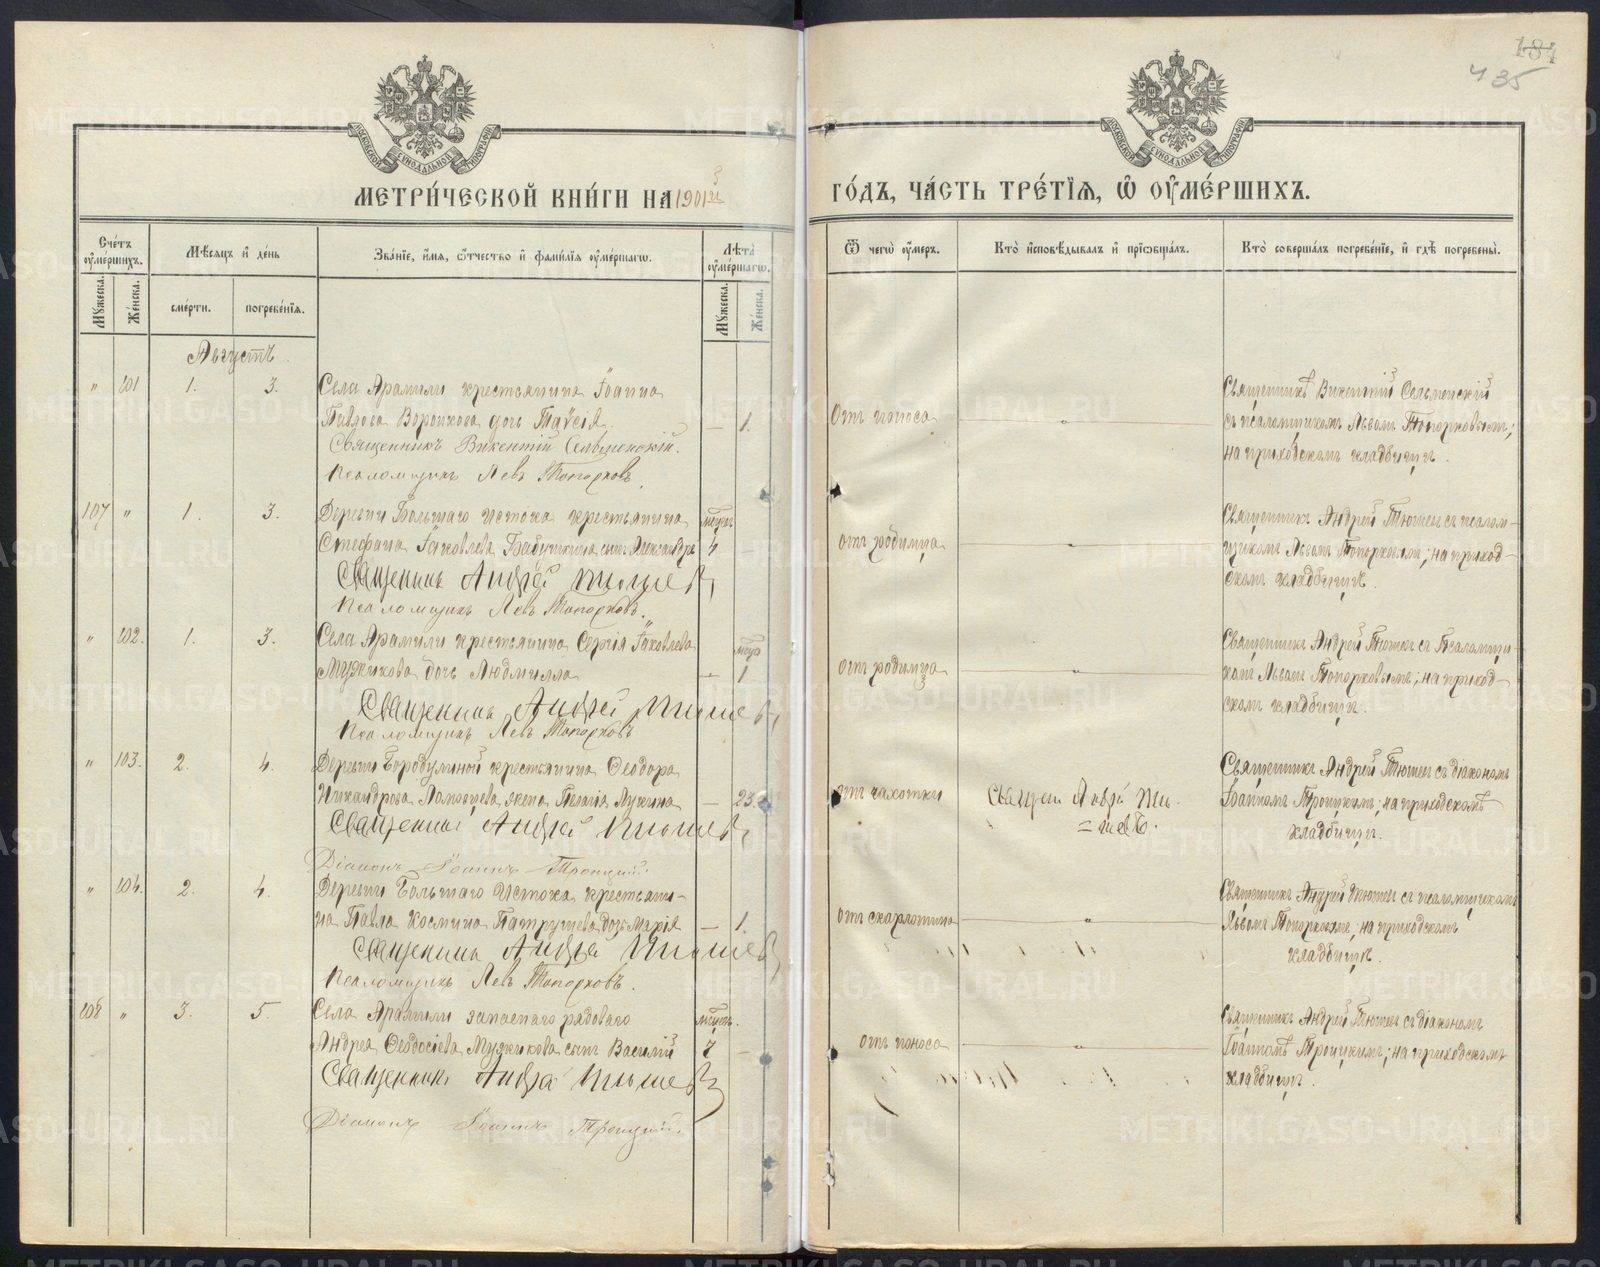 181
435
МЕТРИ́ЧЕСКОЙ КНИ́ГИ НА 1903й
ГО́ДЪ, ЧА́СТЬ ТРЕ́ТЇѦ, Ѽ ОУ҆МЕ́РШИХЪ.
Сче́тъ оу҆ме́ршихъ.
Мѣ́сѧцъ и҆ де́нь
Зва́нїе, и҆́мѧ, ѻ҆́тчество и҆ фамѝлїѧ оу҆ме́ршагѡ.
Лѣ́та оу҆ме́ршагѡ.
Ѿ чегѡ̀ оу҆́меръ.
Кто̀ и҆сповѣ́дывалъ и҆ прїѡбща́лъ.
Кто̀ соверша́лъ погребе́нїе, и҆ гдѣ̀ погребены̀.
Мꙋ́жеска.
Же́нска.
сме́рти.
погребе́нїѧ.
Мꙋ́жеска.
Же́нска.
Августъ.
" 101 1. 3. Села Арамили крестьянина Іоанна
Павлова Воронкова дочь Таисія. — 1.
Священникъ Викентій Сельменскій.
Псаломщикъ Левъ Топорковъ.
отъ поноса
Священникъ Викентій Сельменскій
съ псаломщикомъ Львомъ Топорковымъ;
на приходскомъ кладбищѣ.
107 " 1. 3. Деревни Большаго Истока крестьянина
Стефана Іаковлева Бабушкина сынъ Александръ 4
Священникъ Андрей Тюшевъ
Псаломщикъ Левъ Топорковъ.
отъ родимца
Священникъ Андрей Тюшевъ съ псалом-
щикомъ Львомъ Топорковымъ; на приход-
скомъ кладбищѣ.
" 102. 1. 3. Села Арамили крестьянина Сергія Іаковлева
Мужикова дочь Людмилла — 1
Священникъ Андрей Тюшевъ
Псаломщикъ Левъ Топорковъ
отъ родимца
Священникъ Андрей Тюшевъ съ псаломщи-
комъ Львомъ Топорковымъ; на приход-
скомъ кладбищѣ.
" 103. 2. 4. Деревни Бородулиной крестьянина Ѳеодора
Никандрова жена — 23.
Священникъ Андрей Тюшевъ
Діаконъ Іоаннъ Троицкій.
отъ чахотки
Священ. Андрей Тю-
=шевъ.
Священникъ Андрей Тюшевъ съ діакономъ
Іоанномъ Троицкимъ; на приходскомъ
кладбищѣ.
" 104. 2. 4. Деревни Большаго Истока крестьяни-
на Павла Космина Патрушева дочь Марія — 1.
Священникъ Андрей Тюшевъ
Псаломщикъ Левъ Топорковъ.
отъ скарлатина
Священникъ Андрей Тюшевъ съ псаломщикомъ
Львомъ Топорковымъ, на приходскомъ
кладбищѣ.
108 " 3. 5. Села Арамили запаснаго рядоваго
Андрея Ѳеодосіева Мужикова сынъ Василій 7 —
Священникъ Андрей Тюшевъ
Діаконъ Іоаннъ Троицкій.
отъ поноса
Священникъ Андрей Тюшевъ съ діакономъ
Іоанномъ Троицкимъ; на приходскомъ
кладбищѣ.
METRIKI.GASO-URAL.RU